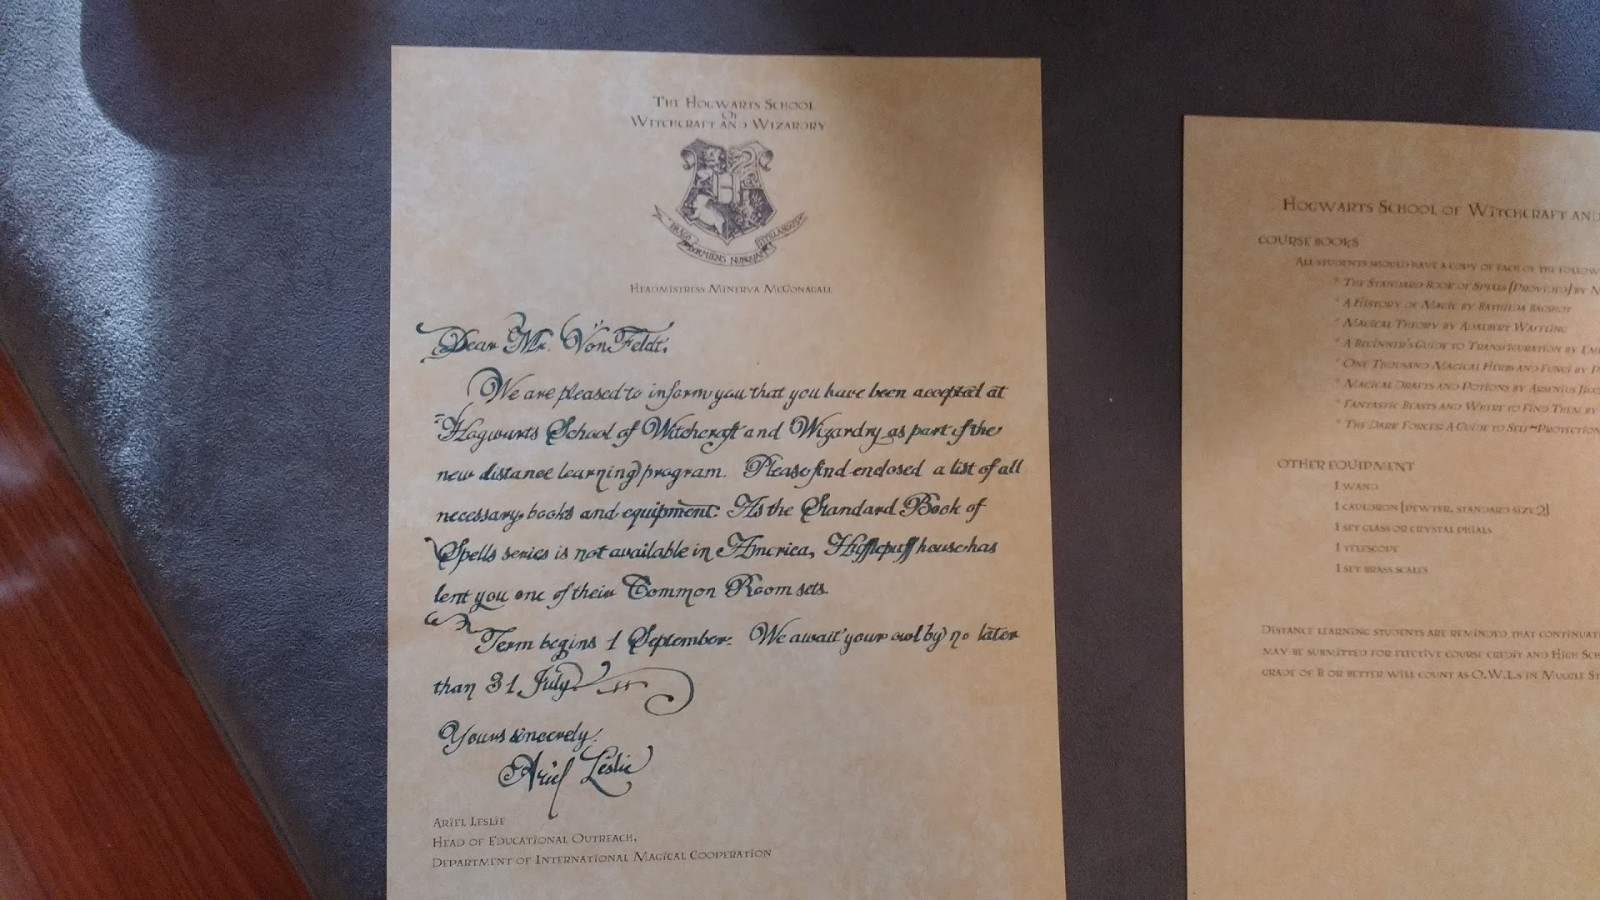 The Hogwarts School
Of
Witchcraft and Wizardry
Draco
Dormiens Nunquam
Titillandus
Headmistress Minerva McGonagall
Dear Mr. Von Feldt,
We are pleased to inform you that you have been accepted at
Hogwarts School of Witchcraft and Wizardry as part of the
new distance learning program. Please find enclosed a list of all
necessary books and equipment. As the Standard Book of
Spells series is not available in America, Hufflepuff house has
lent you one of their Common Room sets.
Term begins 1 September. We await your owl by no later
than 31 July.
Yours sincerely,
Ariel Leslie
Ariel Leslie
Head of Educational Outreach,
Department of International Magical Cooperation
Hogwarts School of Witchcraft and
Course Books
All students should have a copy of each of the
* The Standard Book of Spells [Provided] by
* A History of Magic by Bathilda Bagshot
* Magical Theory by Adalbert Waffling
* A Beginner's Guide to Transfiguration by
* One Thousand Magical Herbs and Fungi by P
* Magical Drafts and Potions by Arsenius
* Fantastic Beasts and Where to Find Them by
* The Dark Forces: A Guide to Self~Protection
Other Equipment
1 wand
1 cauldron [pewter, standard size 2]
1 set glass or crystal phials
1 telescope
1 set brass scales
Distance learning students are reminded that
may be submitted for elective course credit and High
grade of B or better will count as O.W.Ls in Muggle